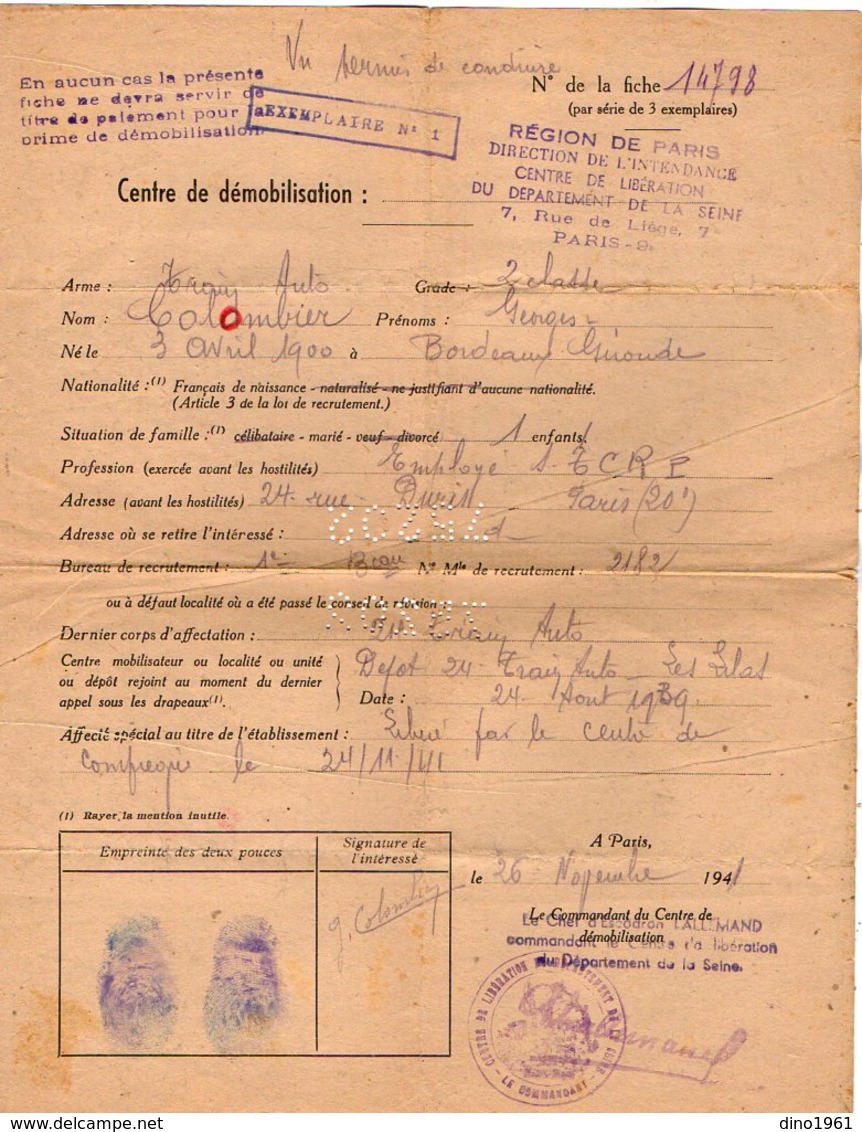 Vu permis de conduire
En aucun cas la présente
fiche ne devra servir de
titre de paiement pour la
prime de démobilisation
EXEMPLAIRE N° 1
N° de la fiche 14798
(par série de 3 exemplaires)
RÉGION DE PARIS
DIRECTION DE L'INTENDANCE
CENTRE DE LIBÉRATION
DU DÉPARTEMENT DE LA SEINE
7, Rue de Liége, 7
PARIS-9
Centre de démobilisation :
Arme : Train Auto Grade : 2 classe
Nom : Colombier Prénoms : Georges
Né le 3 Avril 1900 à Bordeaux Gironde
Nationalité : (1) Français de naissance - naturalisé - ne justifiant d'aucune nationalité.
(Article 3 de la loi de recrutement.)
Situation de famille : (1) célibataire - marié - veuf - divorcé 1 enfant
Profession (exercée avant les hostilités) Employé S.T.C.R.P
Adresse (avant les hostilités) 24 rue Duris Paris (20e)
Adresse où se retire l'intéressé : d
Bureau de recrutement : 1er Bau N° Mle de recrutement : 2182
ou à défaut localité où a été passé le conseil de révision :
Dernier corps d'affectation : Train Auto
Centre mobilisateur ou localité ou unité
ou dépôt rejoint au moment du dernier
appel sous les drapeaux (1).
Depot 24 Train Auto Les Lilas
Date : 24 Aout 1939
Affecté spécial au titre de l'établissement : Libéré par le centre de
Compiegne le 24/11/41
(1) Rayer la mention inutile.
Empreinte des deux pouces
Signature de
l'intéressé
G. Colombier
A Paris,
le 26 Novembre 1941
Le Commandant du Centre de
démobilisation
Le Chef d'Escadron LALLEMAND
commandant le Centre de libération
du Département de la Seine.
CENTRE DE LIBÉRATION DU DÉPARTEMENT DE LA SEINE
LE COMMANDANT
Lallemand
dino1961